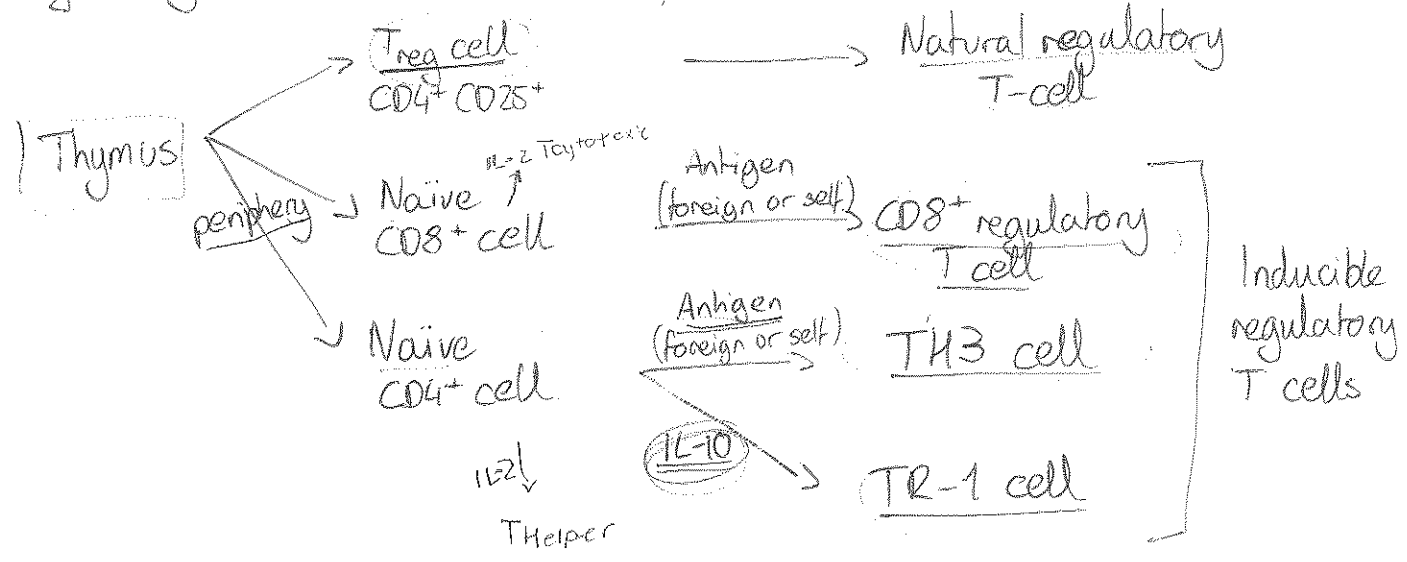 Treg cell
CD4+ CD25+
Natural regulatory
T-cell
Thymus
periphery
Naïve
CD8+ cell
IL-2 Tcytotoxic
Antigen
(foreign or self)
CD8+ regulatory
T cell
Naïve
CD4+ cell
Antigen
(foreign or self)
TH3 cell
IL-10
TR-1 cell
IL-2
THelper
Inducible
regulatory
T cells